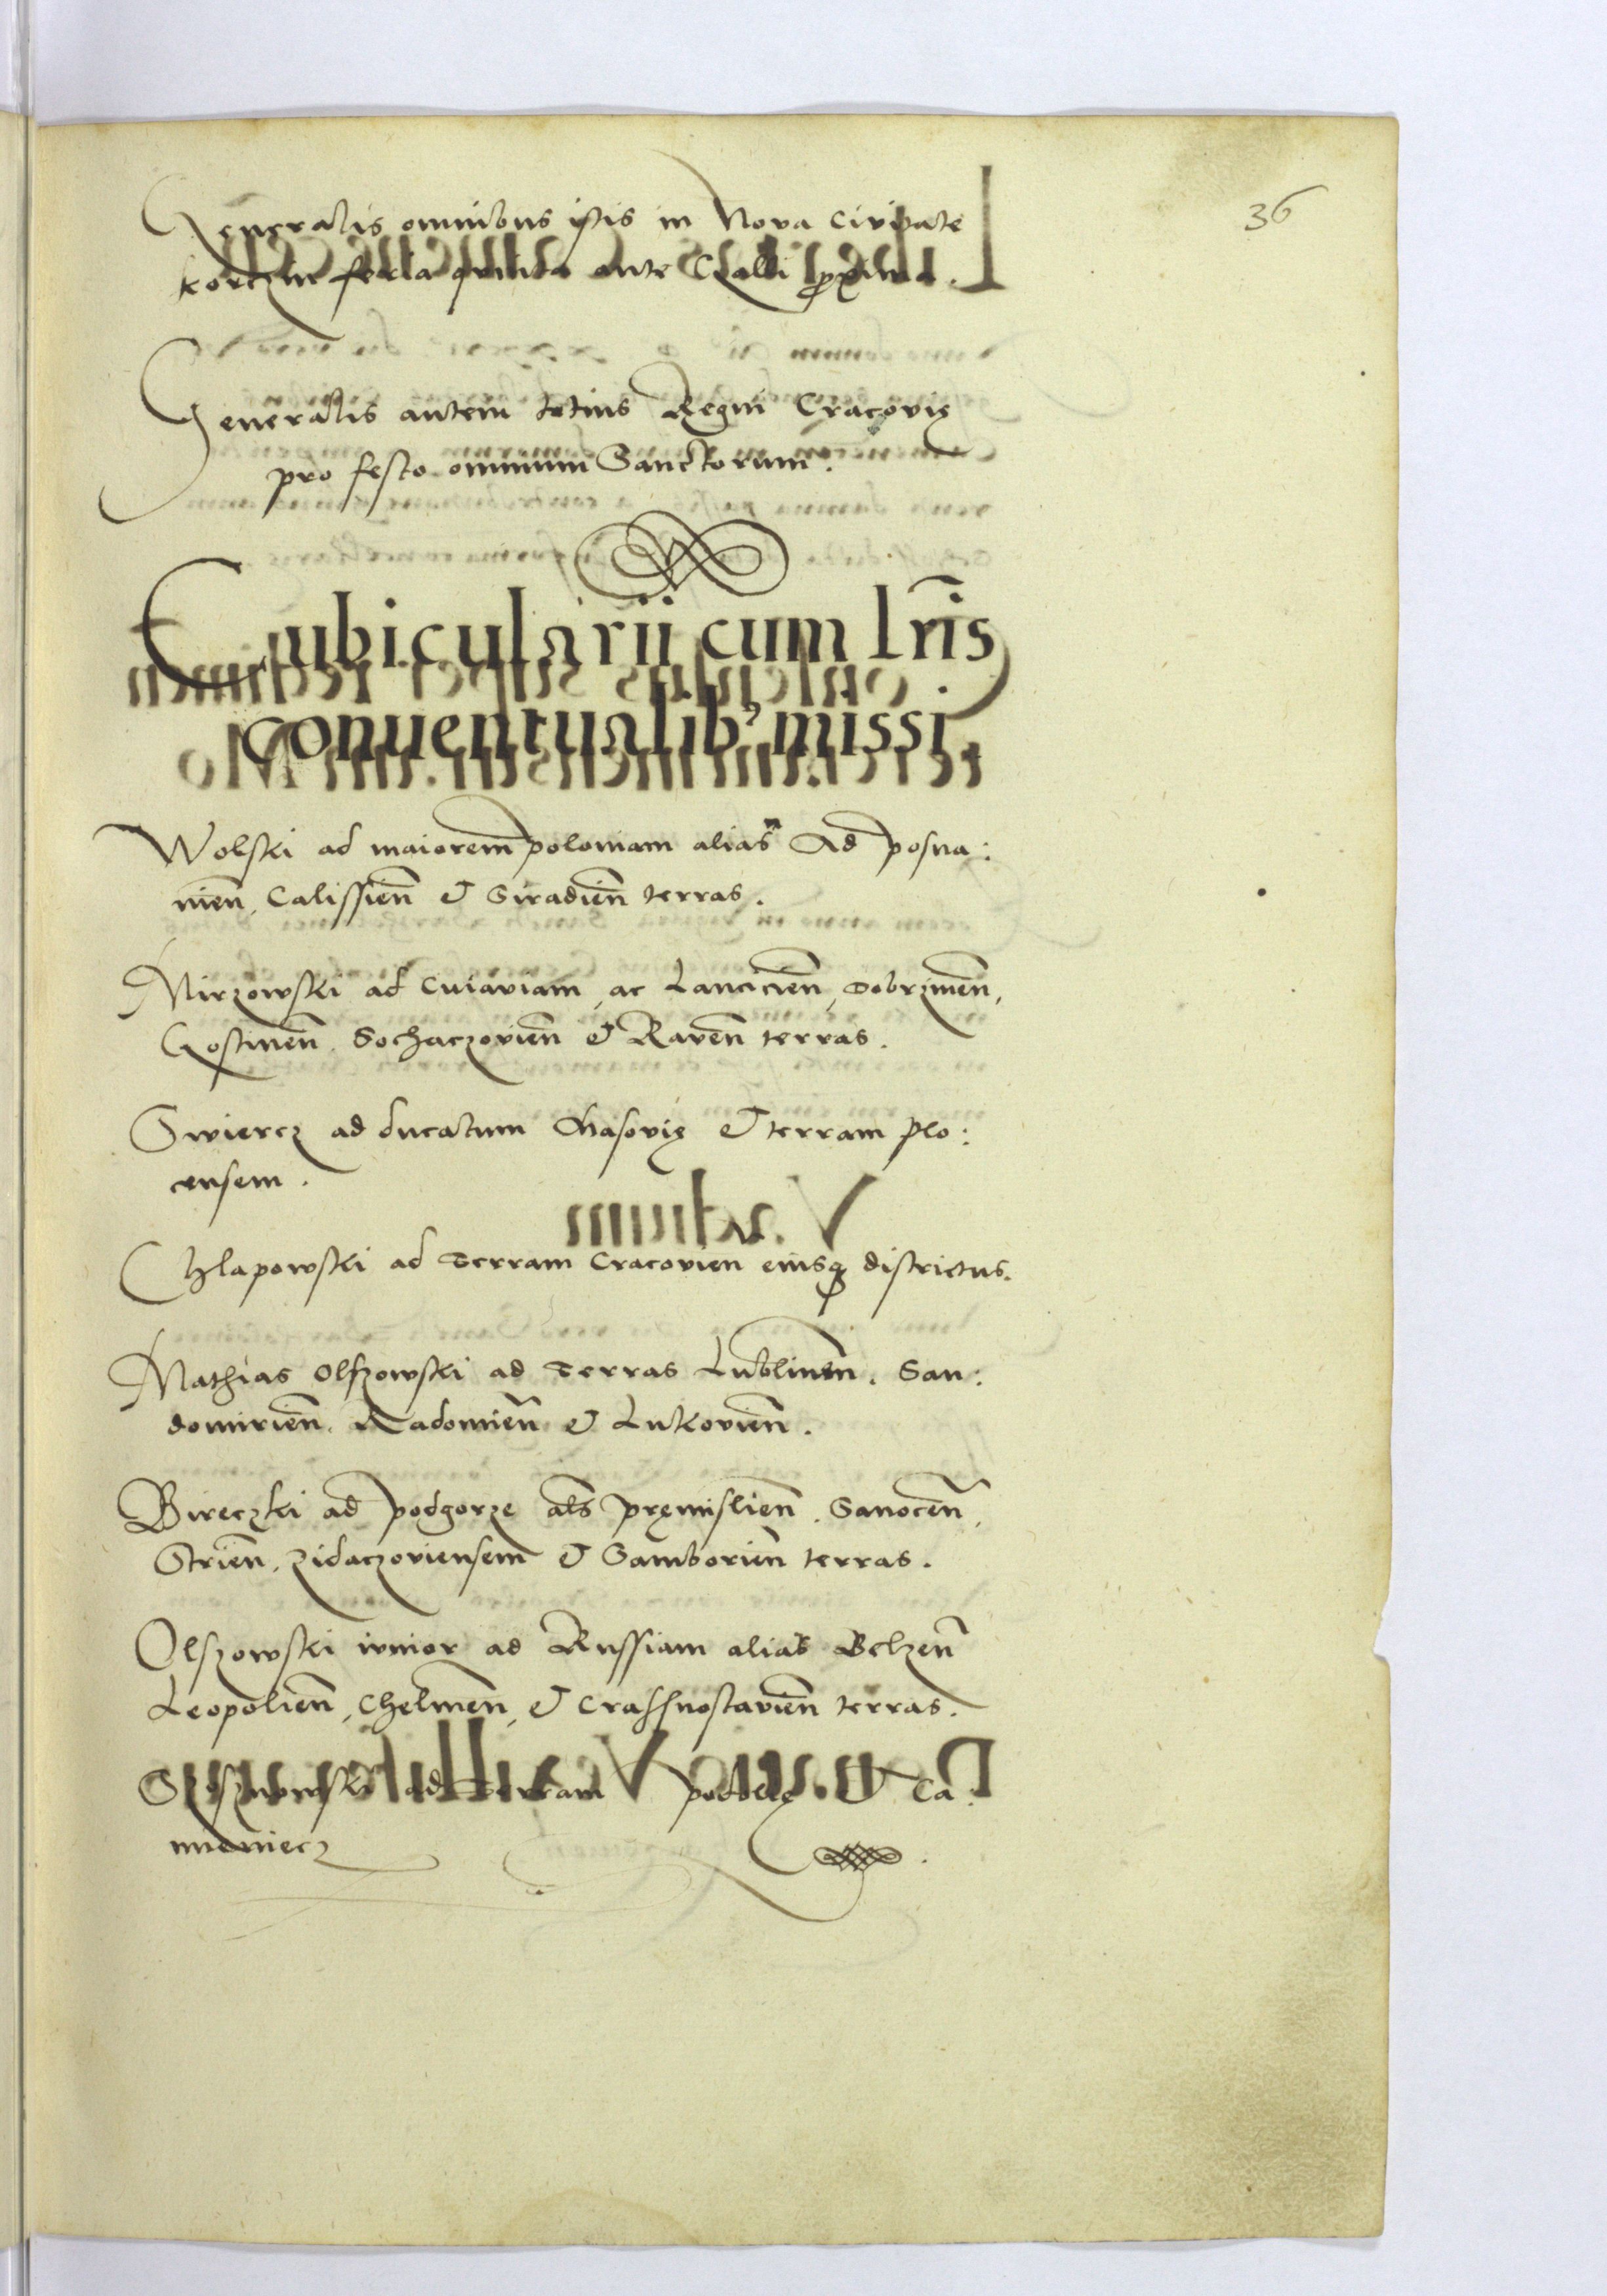 36
Generalis omnibus istis in Nova Civitate
Korczin feria quinta ante Galli proxima.
Generalis autem totius Regni Cracovię
pro festo omnium Sanctorum.
Cubicularii cum lr̃is
conuentualib⁹ missi.
Wolski ad maiorem poloniam alias Ad posna:
nień, Calissień et Siradień terras.
Mirzowski ad Cuiaviam, ac Lancicień, Dobrzineń,
Gostineń, Sochaczovień et Raveń terras.
Swiercz ad ducatum Masovię et terram plo:
censem.
Chlapowski ad Terram Cracovien eiusq districtus.
Mathias Olszowski ad Terras Lublineń. San:
domirień. Radomień et Lukovień.
Bireczki ad podgorze als pręmislień. Sanoceń,
Strień, Zidaczoviensem et Samborień terras.
Olszowski iunior ad Russiam alias Belzeń
Leopolień, Chelmeń, et Crassnostavień terras.
ad Terram podolię et Ca:
mieniecz